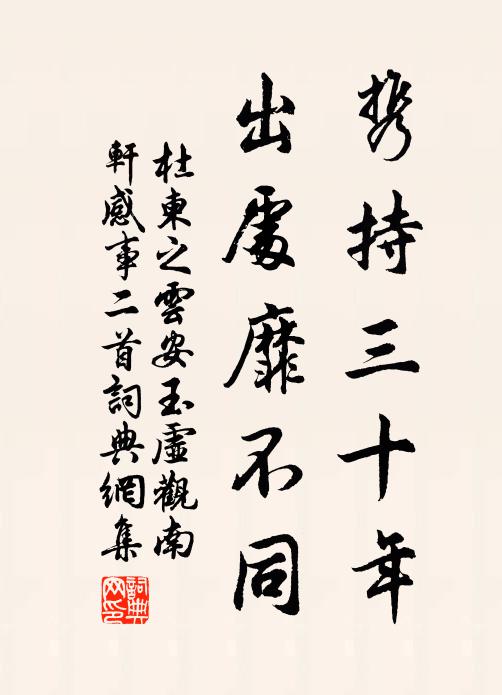 携持三十年
出處靡不同
杜東之雲安玉虛觀南
軒感事二首詞典網集